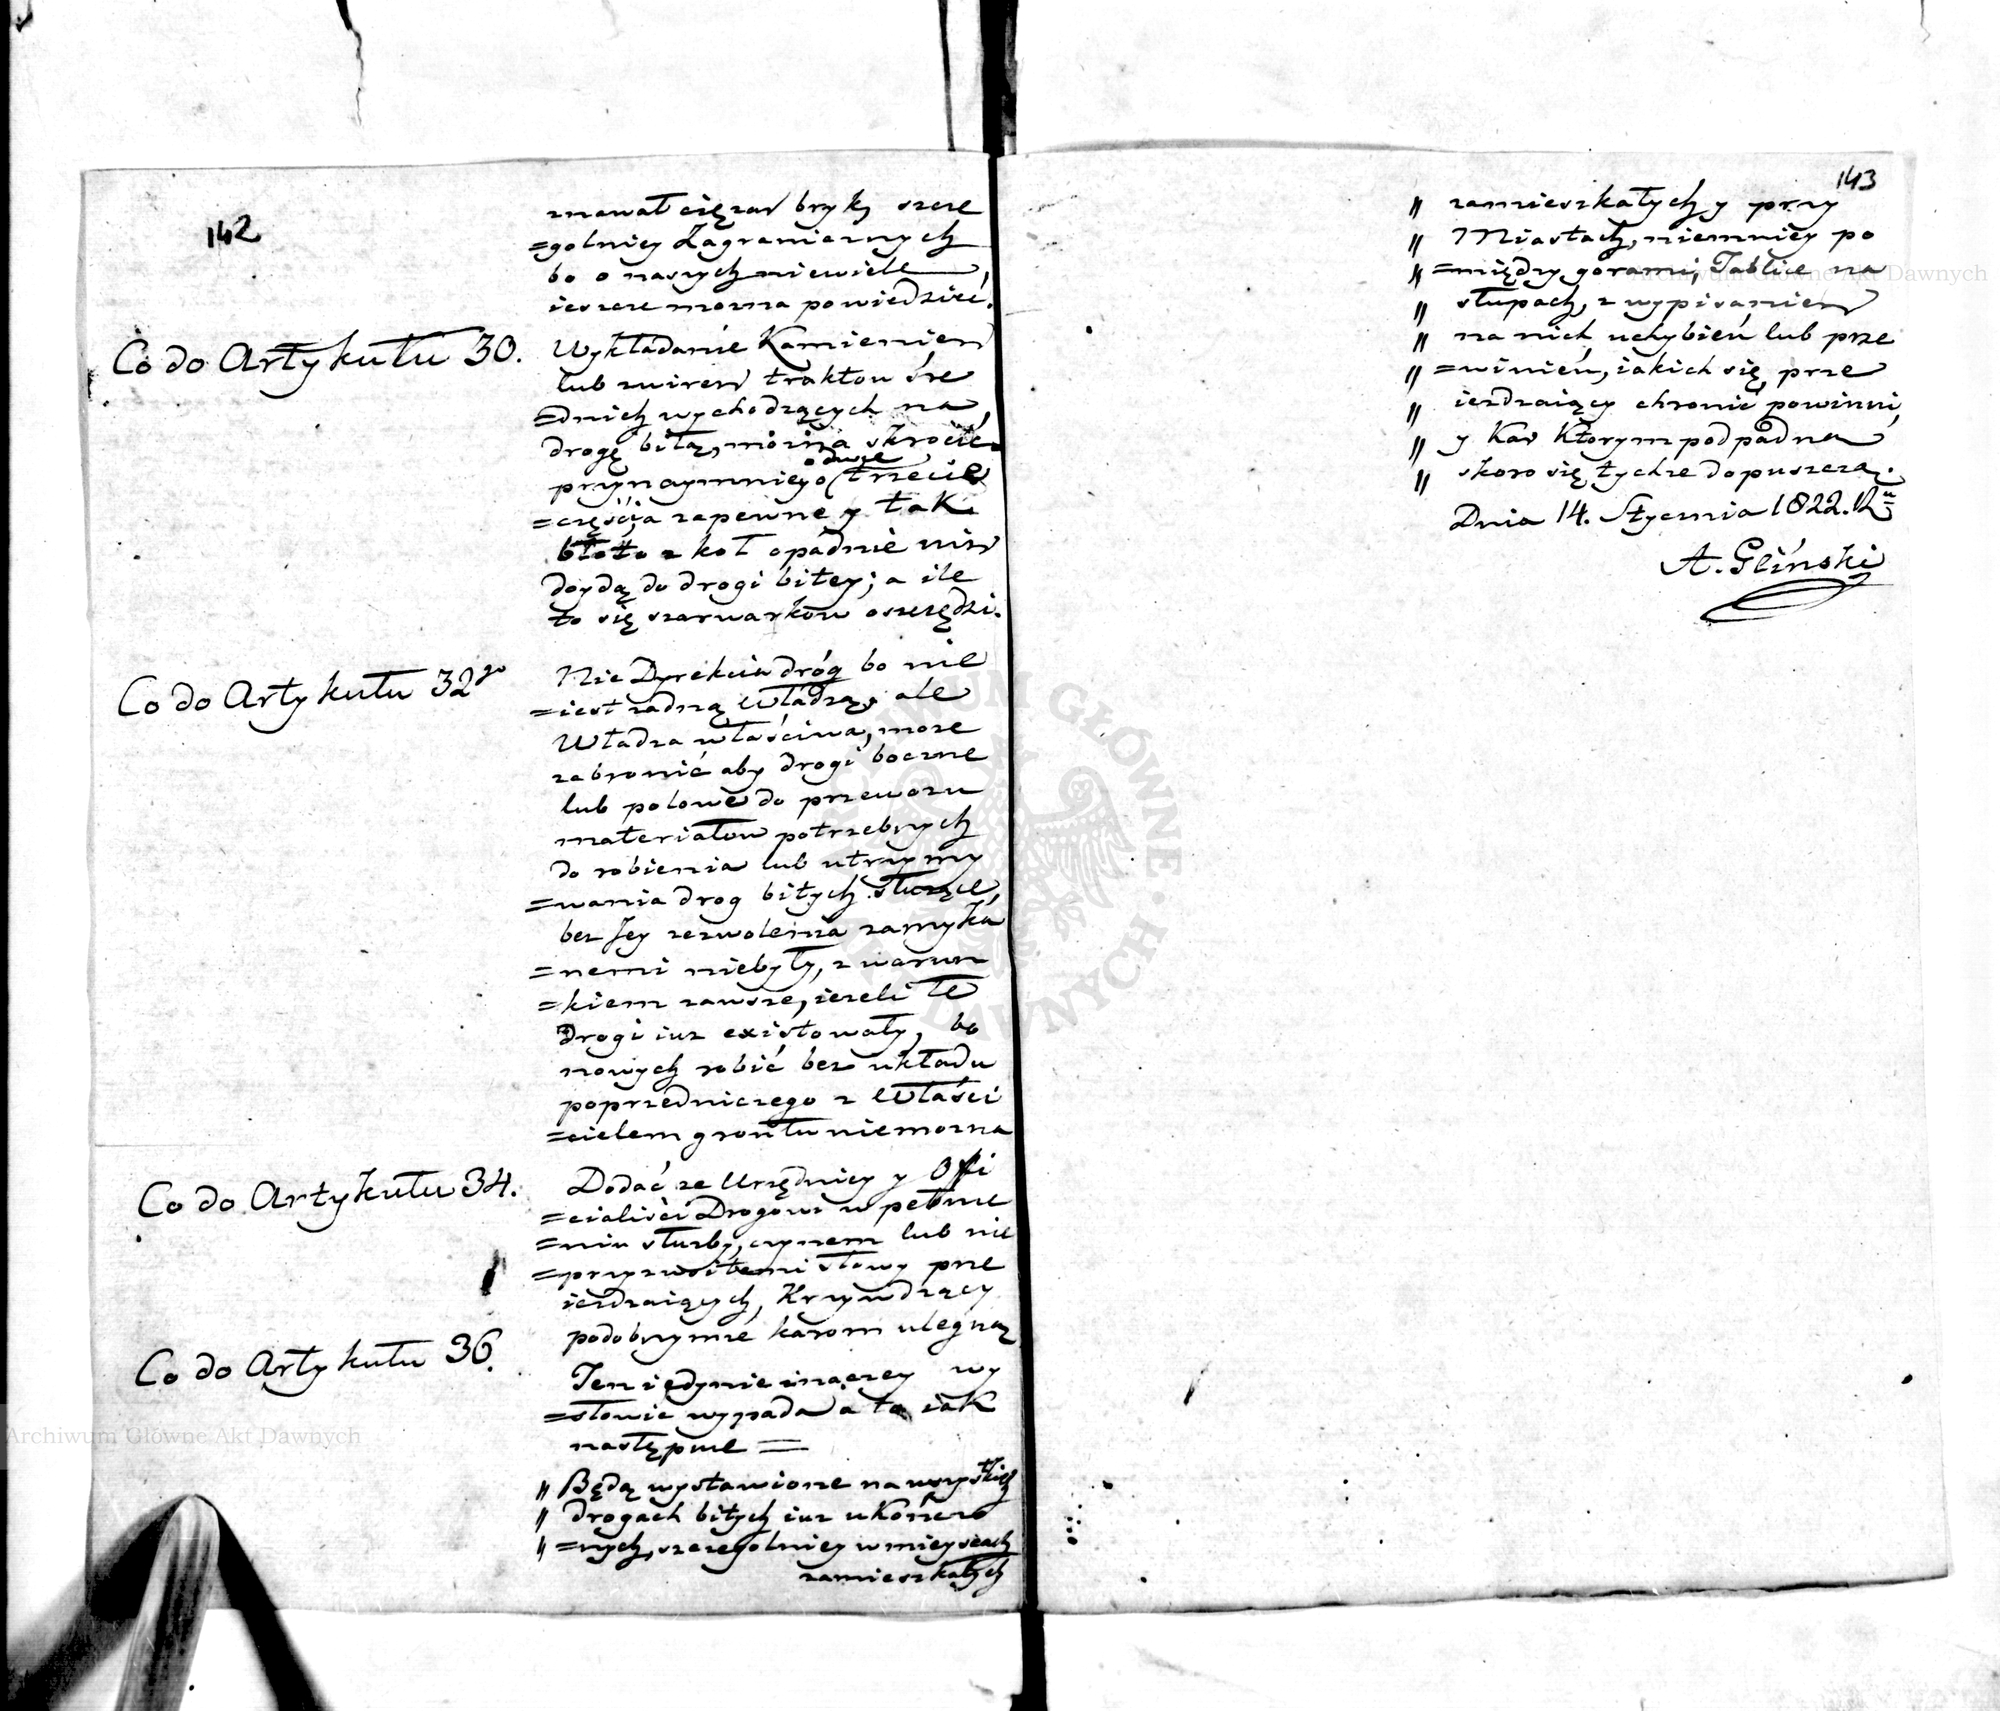 142
znawał ciężar bryk, szcze
=golniey Zagranicznych
bo o naszych niewiele
ieszcze można powiedzieć.
Co do Artykułu 30.
Wykładanie Kamieniem
lub zwirem traktow śre
=dnich wychodzących na
drogę bitą, można skrocić
o dwie
przynaymniey o trzecie
=części, a zapewne y tak
błoto z koł opadnie nim
doydą do drogi bitey; a ile
to się szarwarkow oszczędzi.
Co do Artykułu 32go
Nie Dyrekcia dróg bo nie
=iest zadną Władzą, ale
Władza właściwa, może
zabronić aby drogi boczne
lub polowe do przewozu
materiałow potrzebnych
do robienia lub utrzymy
=wania drog bitych służące,
bez Jey zezwolenia zamyka
=nemi niebyły, z warun
=kiem zawsze, ieżeli te
Drogi iuz existowały, bo
nowych robić bez układu
poprzedniczego z Właści
=cielem grontu niemożna
Co do Artykułu 34.
Dodać ze Urzędnicy y Offi
=cialiści Drogowi w pełnie
=niu służby, czynem lub nie
=przyzwoitemi słowy prze
ieżdzaiących, Krzywdzący
podobnymże karom ulegną
Co do Artykułu 36.
Ten iedynie inaczey wy
=słowić wypada a to iak
następnie =
" Będą wystawione na wszystkich
" drogach bitych iuz ukończo
" =nych, szczegolniey w mieyscach
zamieszkałych
143
" zamieszkałych y przy
" Miastach, niemniey po
" =między górami, Tablice na
" słupach, z wypisaniem
" na nich uchybień lub prze
" =winień, iakich się prze
" ieżdzaiący chronić powinni,
" y Kar Którym podpadną
" skoro się tychże dopuszczą.
Dnia 14. Stycznia 1822. R
A. Gliński
Archiwum Główne Akt Dawnych
Archiwum Główne Akt Dawnych